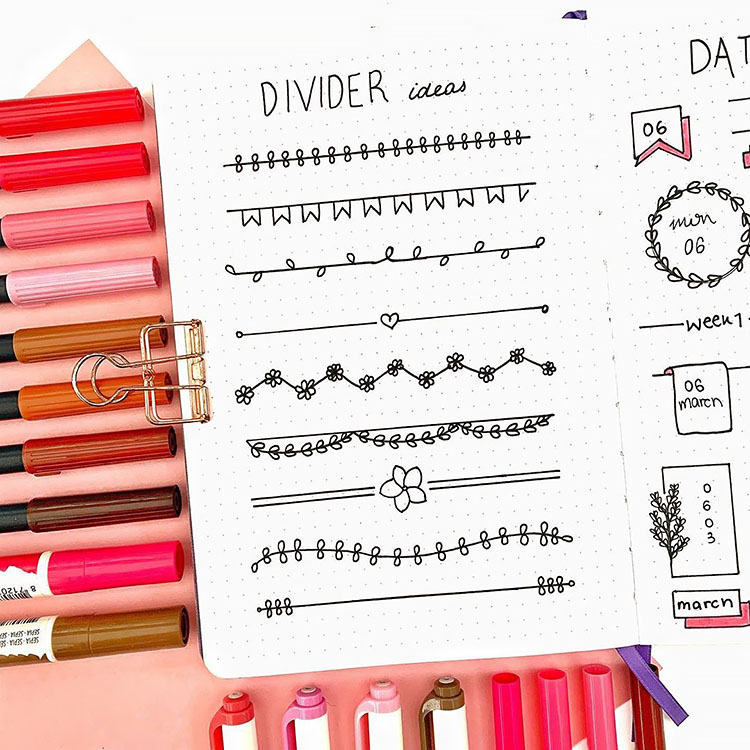 DIVIDER ideas
DAT
06
min
06
week 1
06
march
0
6
0
.3
march
8 7120
SEPIA - SEPIA - SEPIA